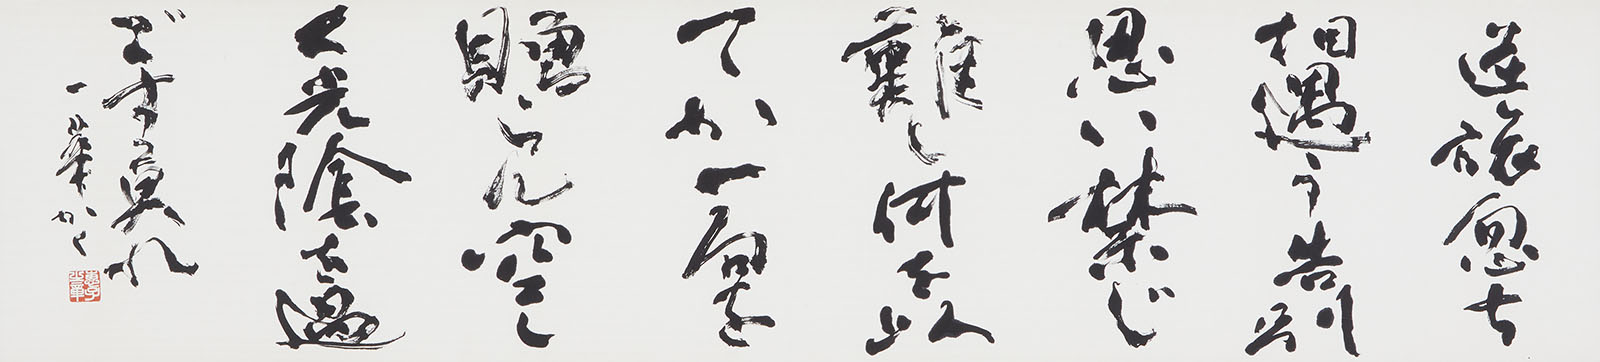 逆旅忽ち
相遇う告別
思い禁じ
難し何を以
てか一句を
贈らん空し
く光陰を過
ごす莫れ
一華かく